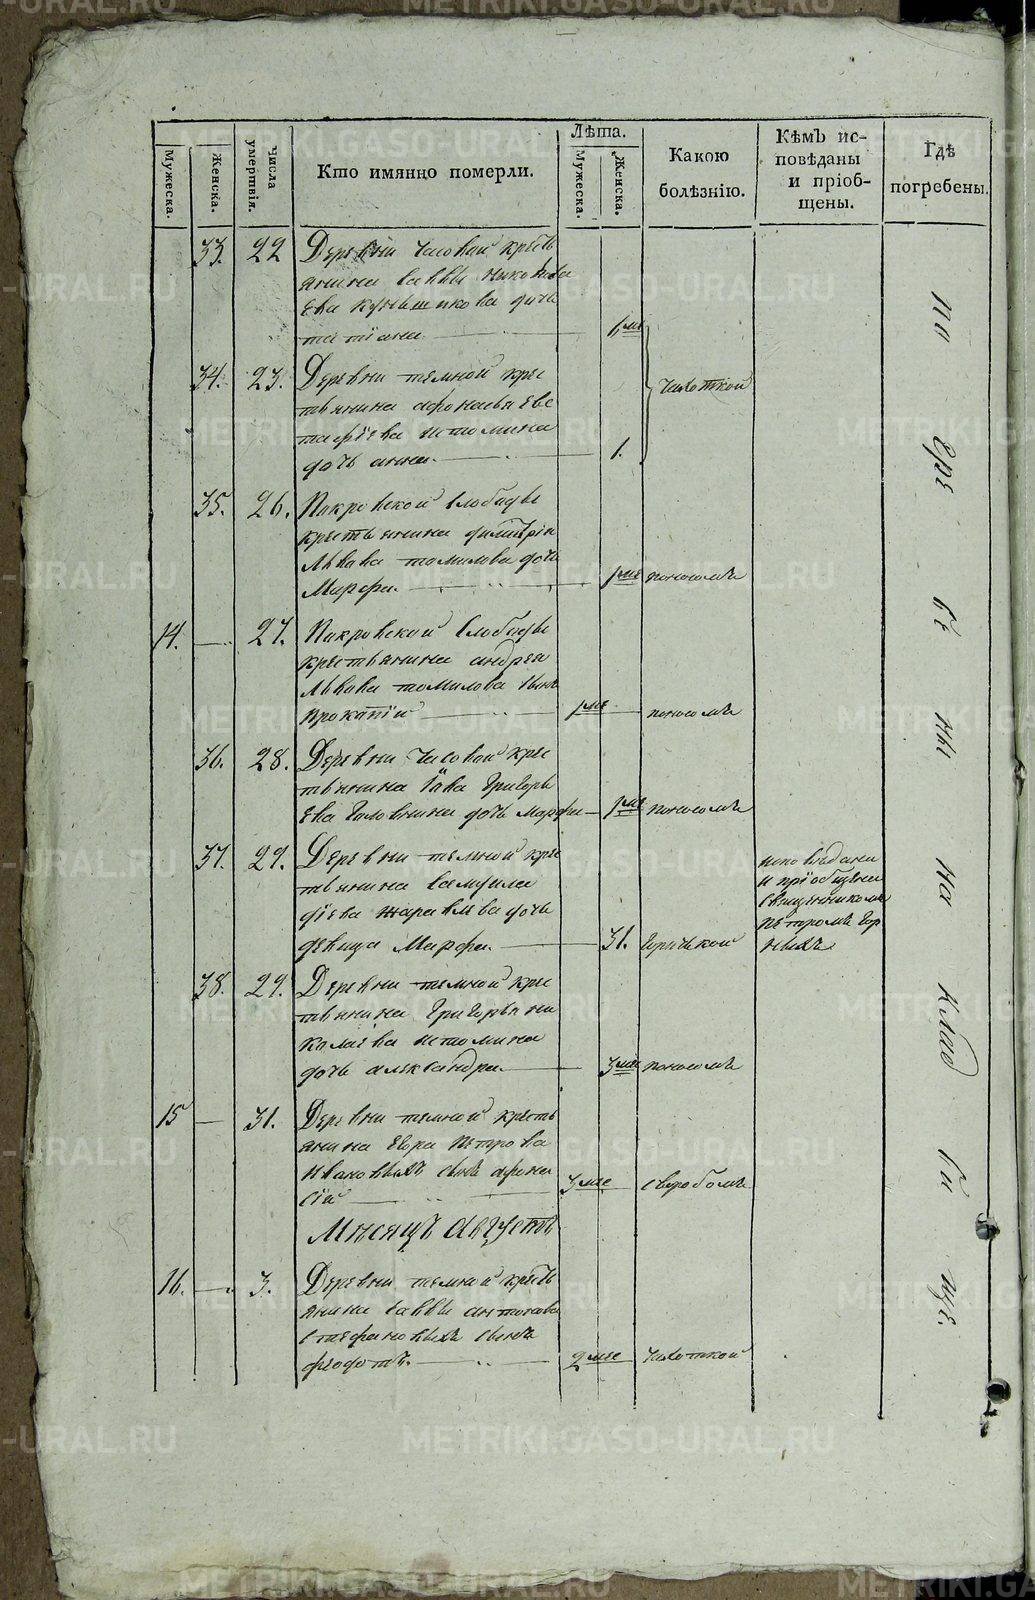 Мужеска.
Женска.
Числа умертвія.
Кто имянно померли.
Лѣта.
Мужеска.
Женска.
Какою
болѣзнію.
Кѣмъ ис-
повѣданы
и пріоб-
щены.
Гдѣ
погребены.
33. 22 Деревни Часовой кресть
янина Саввы
дочь
татіана 6 ме
34. 23. Деревни темной крес
тьянина афонасья Евс
тафіева истомина
дочь анна. 1. чахоткой
35. 26. Покровской слободы
крестьянина димитріа
Львова томилова дочь
Марфа. 1 ме поносомъ
14. 27. Покровской слободы
крестьянина андрея
Львова томилова сынъ
Прокопій 1 ме поносомъ
36. 28. Деревни Часовой крес
тьянина Іова Григорь
ева Головнина дочь Марфа 1 ме поносомъ
37. 29. Деревни темной крес
тьянина Самуила
фіева жаравлева дочь
девица Марфа. 31. Горячкой
исповѣдана
и пріобщена
священникомъ
петромъ Гор
ныхъ
38. 29. Деревни темной крес
тьянина Григорья ни
колаева истомина
дочь александра. 3 ме поносомъ
15 31. Деревни темной кресть
янина Егора Петрова
Ивановыхъ сынъ афона
сій 3 ме своробомъ
Мѣсяцъ Августъ
16. 3. Деревни темной кресть
янина саввы антонова
стефановыхъ сынъ
феодотъ. 2 ме чахоткой
на
клад
би
ще.
METRIKI.GASO-URAL.RU